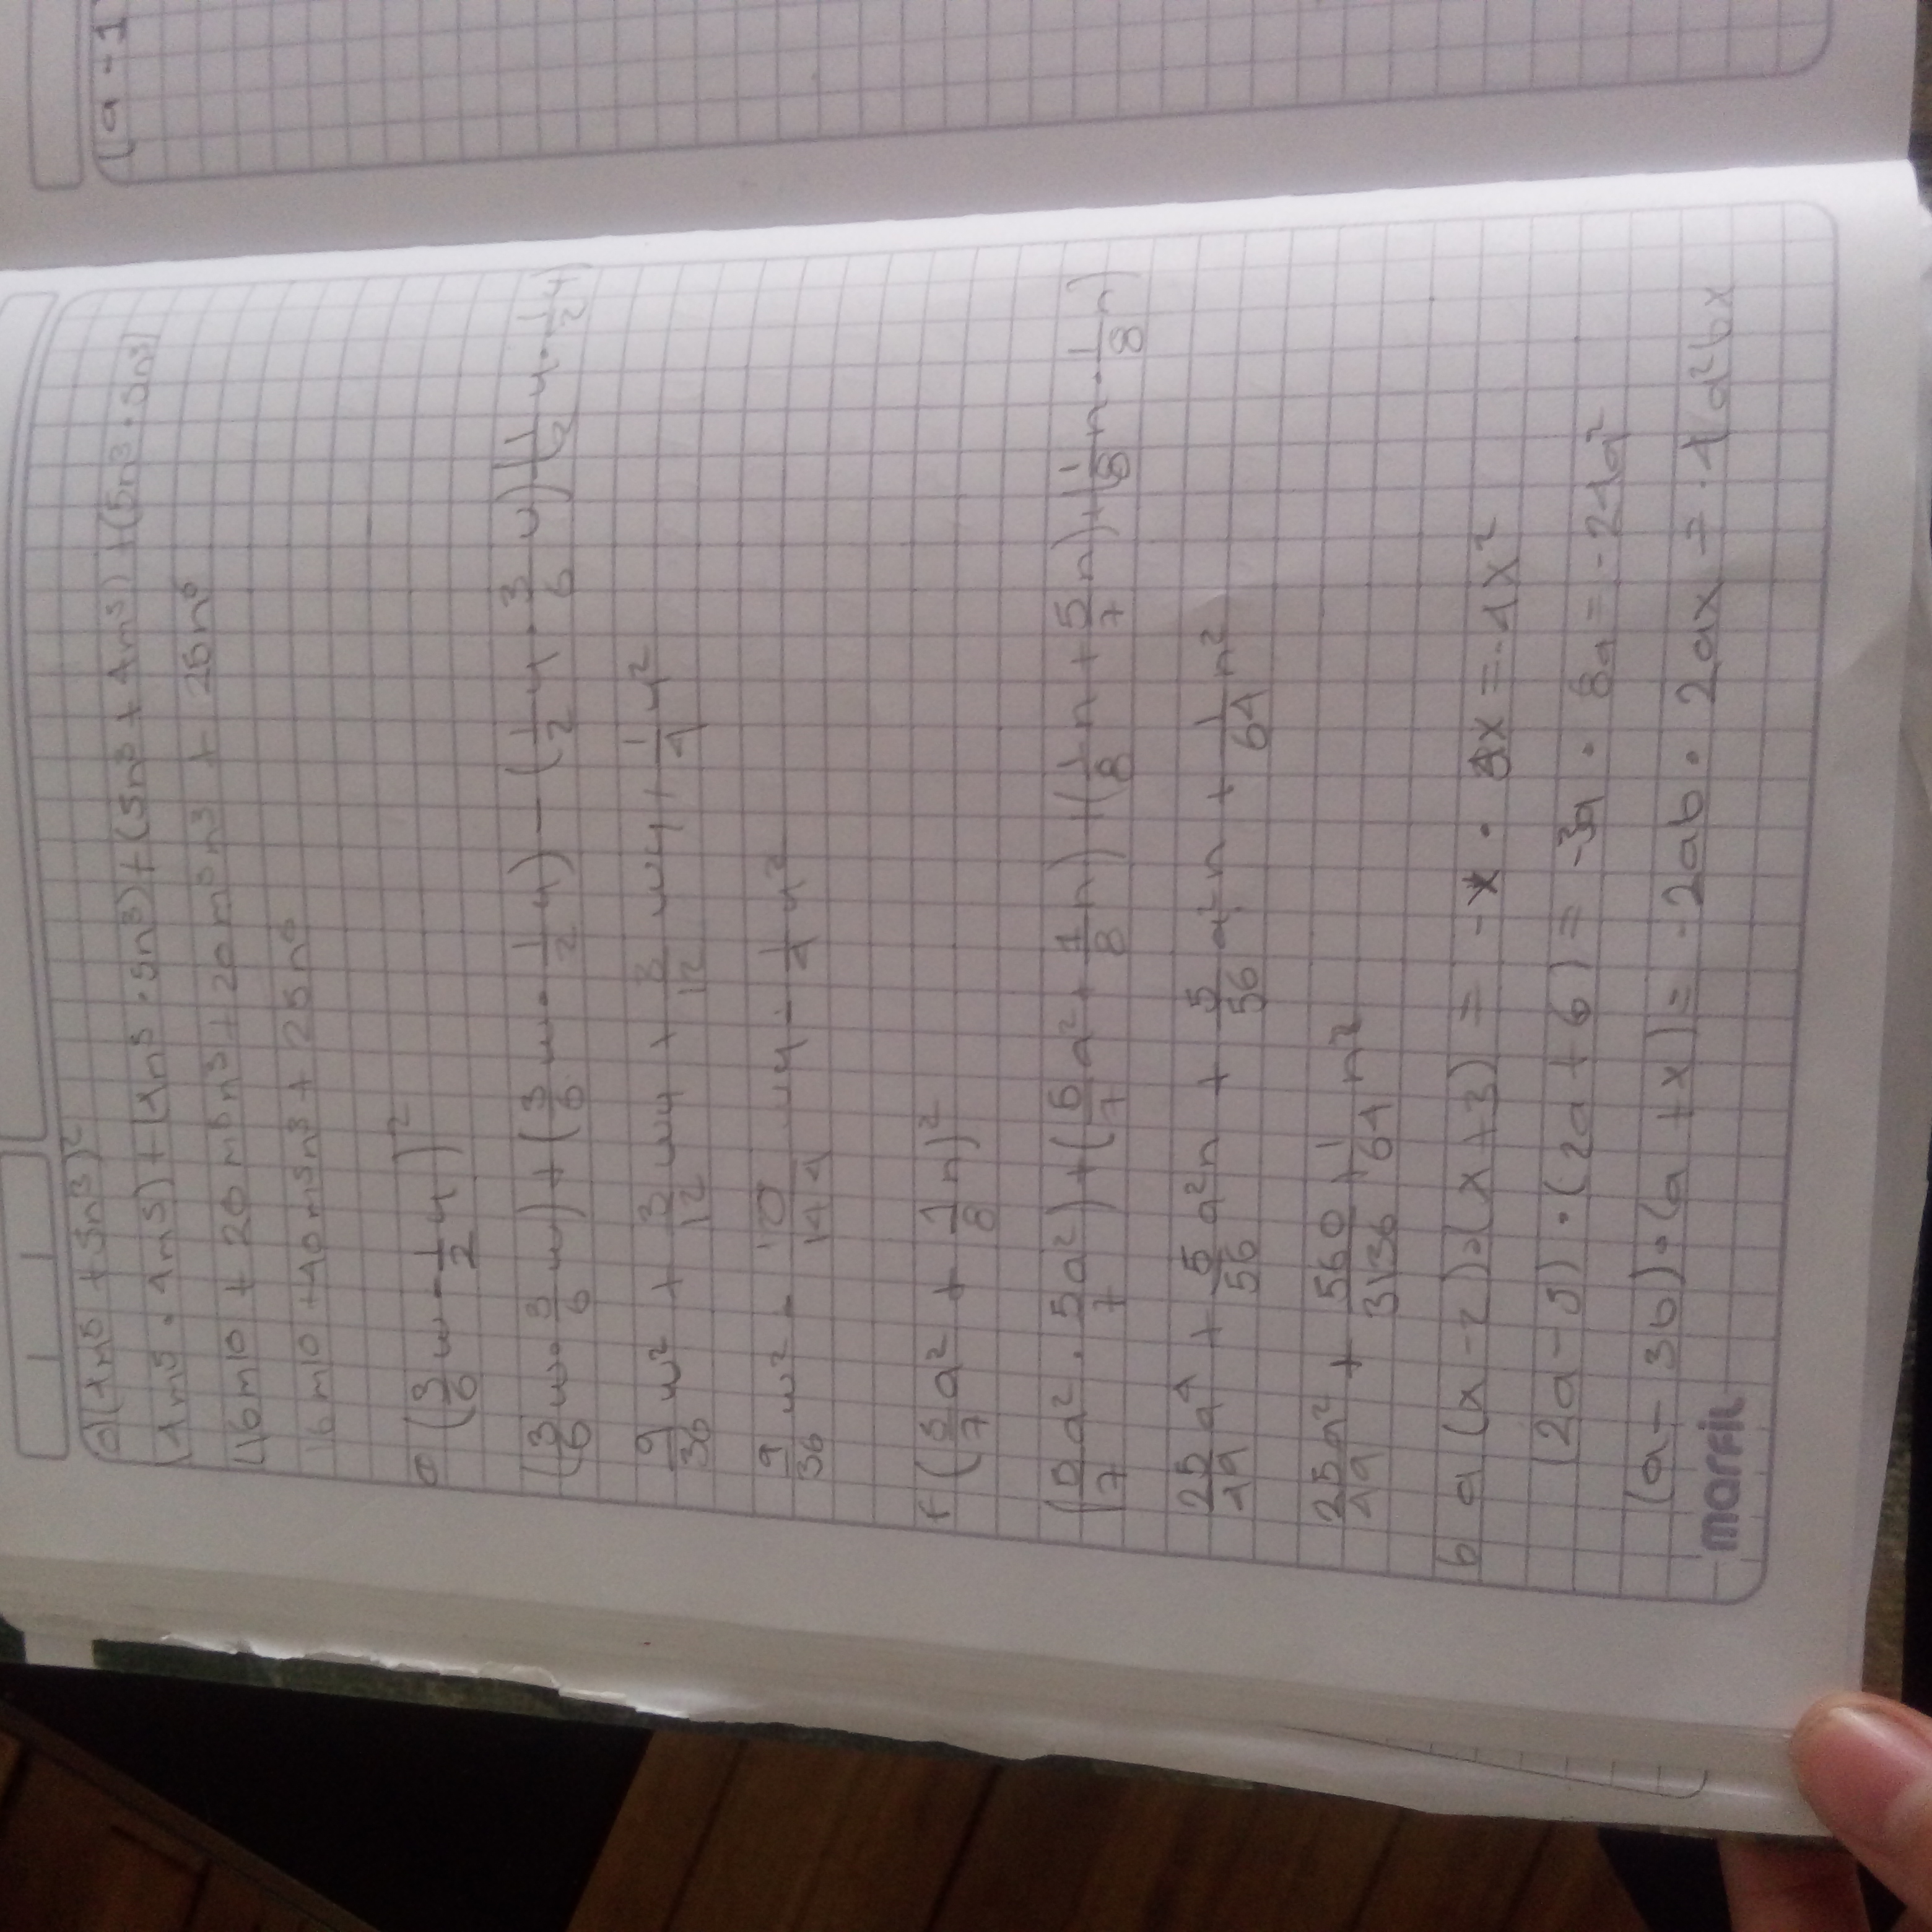 d) (4m⁵ + 5n³)²
(4m⁵ · 4m⁵) + (4m⁵ · 5n³) + (5n³ + 4m⁵) + (5n³ · 5n³)
(16m10 + 20m⁵n³ + 20m⁵n³ + 25n⁶
16m10 + 40m⁵n³ + 25n⁶
e (3/6 w - 1/2 y)²
(3/6 w · 3/6 w) + (3/6 w · 1/2 y) - (1/2 y · 3/6 w) (1/2 y · 1/2 y)
9/36 w² + 3/12 wy + 3/12 wy + 1/4 y²
9/36 w² - 10/144 wy - 1/4 y²
f (5/7 a² + 1/8 n)²
(5/7 a² · 5/7 a²) + (5/7 a² + 1/8 n) + (1/8 n + 5/7 n) + (1/8 n · 1/8 n)
25/49 a⁴ + 5/56 a²n + 5/56 a²n + 1/64 n²
25/49 a² + 560/3136 + 1/64 n²
6 a (x - 2) · (x + 3) = -x · 4x = -4x²
(2a - 5) · (2a + 6) = -3a · 8a = -24a²
(a - 3b) · (a + x) = -2ab · 2ax = -4a²bx
marfil
(a - 1